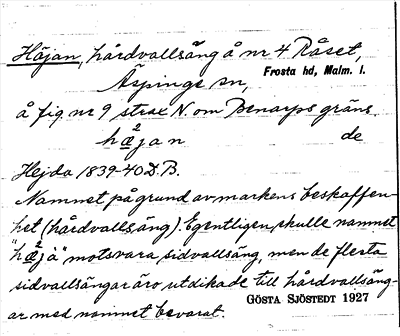 Häjan, hårdvallsäng å nr 4 Råset,
Äspinge sn, Frosta hd, Malm. l.
å fig. nr 9 strax N. om Benarps gräns.
hæ²jan de
Hejda 1839-40 D.B.
Namnet på grund av markens beskaffen-
het (hårdvallsäng). Egentligen skulle namnet
"hæ²jä" motsvara sidvallsäng, men de flesta
sidvallsängar äro utdikade till hårdvallsäng-
ar med namnet bevarat.
GÖSTA SJÖSTEDT 1927